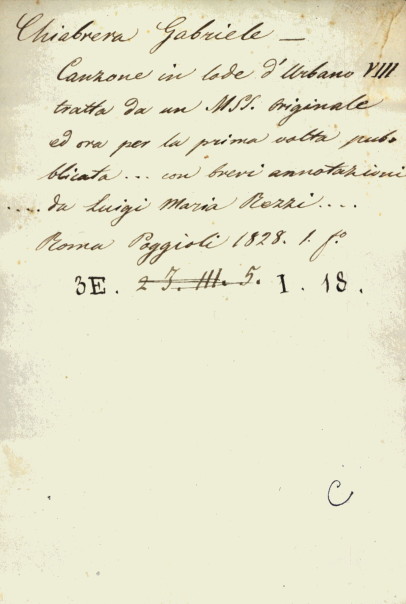 Chiabrera Gabriele —
Canzone in lode d'Urbano VIII
tratta da un MSS. originale
ed ora per la prima volta pub-
blicata ... con brevi annotazioni
.... da Luigi Maria Rezzi ....
Roma Poggioli 1828. 1. fo.
3E. 2 J. III. 5. I. 18.
C